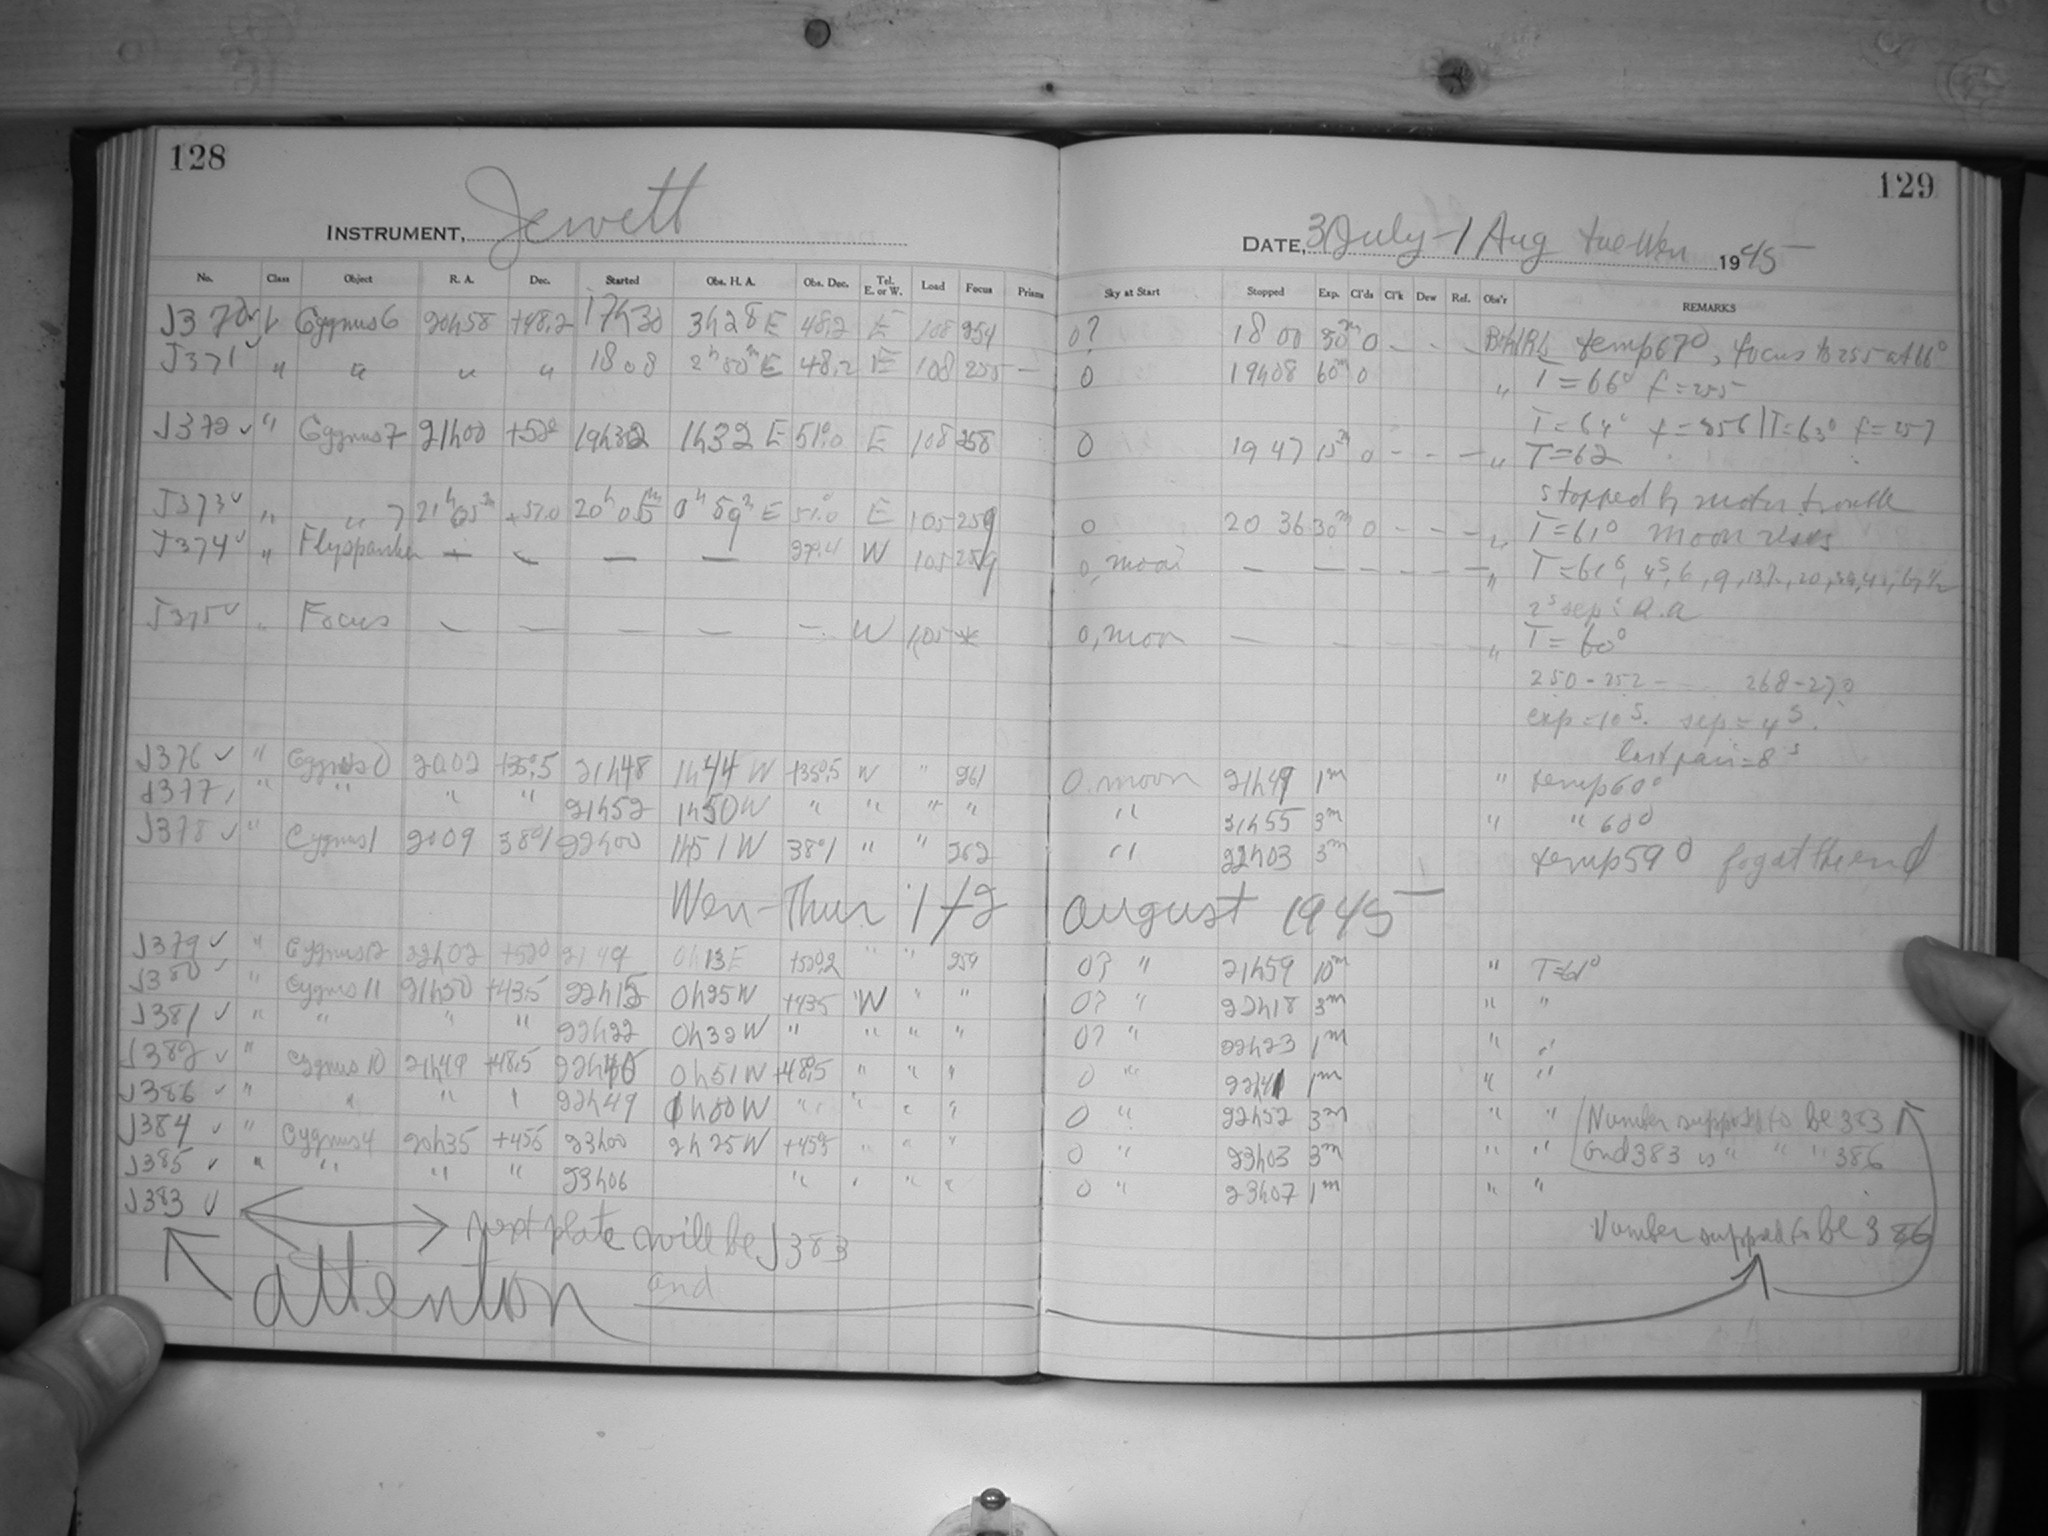 128
129
INSTRUMENT, Jewett
DATE, 31 July-1 Aug tue-Wen 1945
No. Class Object R. A. Dec. Started Obs. H. A. Obs. Dec. Tel. E. or W. Load Focus Prism Sky at Start Stopped Exp. Cl'ds Cl'k Dew Ref. Obs'r REMARKS
J370 Cygnus 6 20h58 +48.2 17h30 3h28 E 48.2 E 108 254 0? 18 00 30m 0 - - - temp 67°, focus to 255 at 66°
J371 " " " " 18 08 2h 50m E 48.2 E 108 255 - 0 19h08 60m 0 " T = 66° f = 255
T = 64° f = 256 | T = 63° f = 257
J372 ✓ " Cygnus 7 21h00 +52° 19h32 1h32 E 51°.0 E 108 258 0 19 47 15m 0 - - - " T=62
stopped by motor trouble
J373 ✓ " " 7 21h 05m +51.0 20h 05m 0h 59m E 51.0 E 105 259 0 20 36 30m 0 - - - " T = 61° moon rises
J374 ✓ " Flyspanker - - - - W 105 259 0, moon - - - - - - " T = 61°
2s sep: R.a
J375 ✓ " Focus - - - - - W 105 * 0, moon - " T = 60°
250 - 252 - 268 - 270
exp = 10s. sep = 4s.
last pair = 8s
J376 ✓ " Cygnus 0 2002 +35°.5 21h48 1h44 W +35°.5 W " 261 0. moon 21h49 1m " temp 60°
J377 " " " " 21h52 1h50 W " " " " " 21h55 3m " " 60°
J378 ✓ " Cygnus 1 2009 38°1 22h00 1h51 W 38°1 " " 262 " 22h03 3m temp 59° fog at the end
Wen-Thur 1/2 august 1945
J379 ✓ " Cygnus 12 22h02 +52° 21 49 0h13 E +52°.2 " " 259 0? " 21h59 10m " T=61°
J380 ✓ " Cygnus 11 21h50 +43.5 22h15 0h25 W +43.5 W " " 0? " 22h18 3m " "
J381 ✓ " " " " 22h22 0h32 W " " " " 0? " 22h23 1m " "
J382 ✓ " Cygnus 10 21h49 +48.5 22h40 0h51 W +48°.5 " " " 0 " 22h41 1m " "
J386 ✓ " " " " 22h49 1h00 W " " " " 0 " 22h52 3m " " Number supposed to be 383
J384 ✓ " Cygnus 4 20h35 +455 23h00 2h25 W +455 " " " 0 " 23h03 3m " " and 383 is " " " 386
J385 ✓ " " " " 23h06 " " " " 0 " 23h07 1m " "
J383 ✓ next plate will be J383
Number supposed to be 386
attenton and